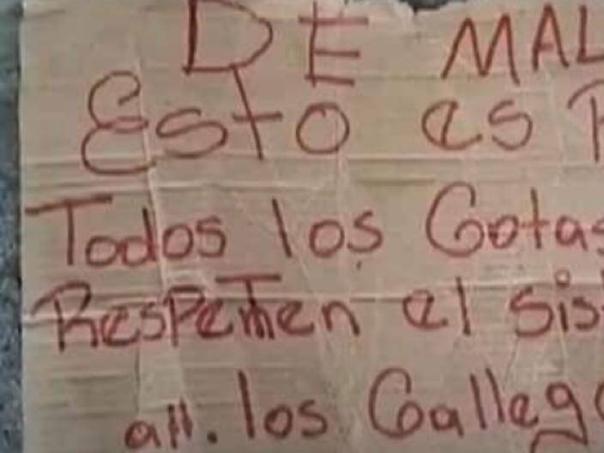 DE MAL
Esto es
Todos los Gotas
Respeten el sis
att. los Galleg